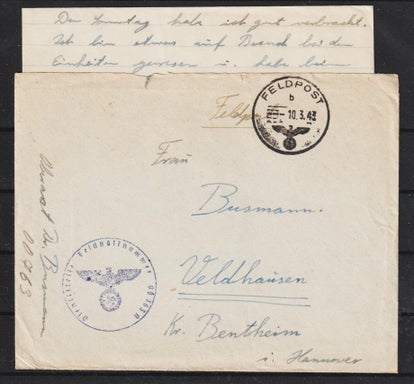 Den Sonntag habe ich gut verbracht.
Ich bin etwas auf Besuch bei den
Einheiten gewesen u. habe beim
FELDPOST
b
10.3.43
Feldpost
Frau
Busmann.
Veldhausen
Kr. Bentheim
i. Hannover
Dr. Busmann
00763
Dienststelle Feldpostnummer 00763 A